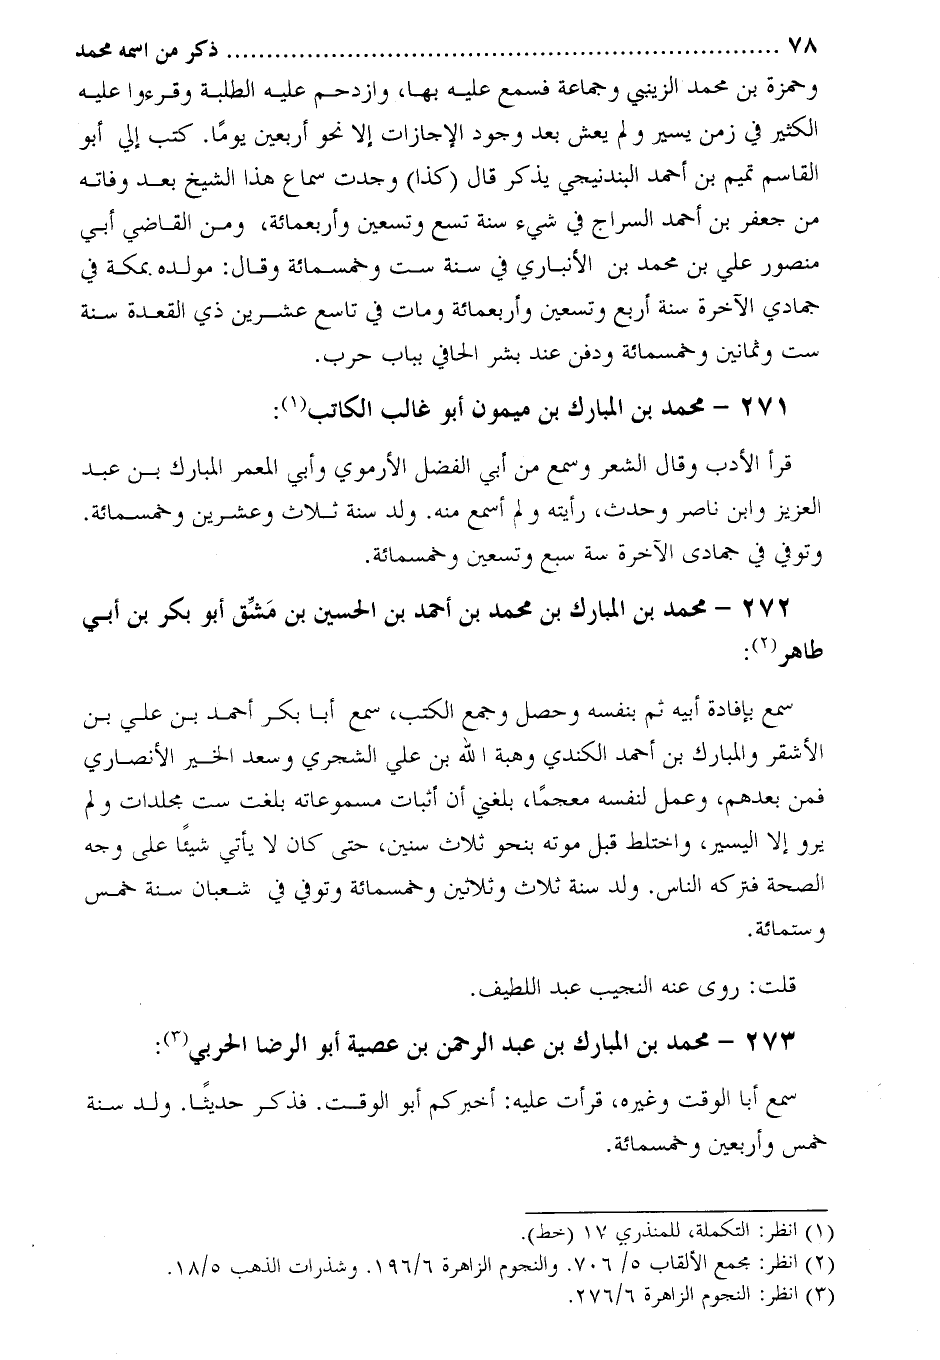 ٧٨ ................................................................................ ذكر من اسمه محمد
وحمزة بن محمد الزينبي وجماعة فسمع عليه بها، وازدحم عليه الطلبة وقرءوا عليه
الكثير في زمن يسير ولم يعش بعد وجود الإجازات إلا نحو أربعين يومًا. كتب إلي أبو
القاسم تميم بن أحمد البندنيجي يذكر قال (كذا) وجدت سماع هذا الشيخ بعد وفاته
من جعفر بن أحمد السراج في شيء سنة تسع وتسعين وأربعمائة، ومن القاضي أبي
منصور علي بن محمد بن الأنباري في سنة ست وخمسمائة وقال: مولده بمكة في
جمادي الآخرة سنة أربع وتسعين وأربعمائة ومات في تاسع عشرين ذي القعدة سنة
ست وثمانين وخمسمائة ودفن عند بشر الحافي بباب حرب.
٢٧١ – محمد بن المبارك بن ميمون أبو غالب الكاتب(١):
قرأ الأدب وقال الشعر وسمع من أبي الفضل الأرموي وأبي المعمر المبارك بن عبد
العزيز وابن ناصر وحدث، رأيته ولم أسمع منه. ولد سنة ثلاث وعشرين وخمسمائة.
وتوفي في جمادى الآخرة سة سبع وتسعين وخمسمائة.
٢٧٢ – محمد بن المبارك بن محمد بن أحمد بن الحسين بن مَشِّق أبو بكر بن أبي
طاهر(٢):
سمع بإفادة أبيه ثم بنفسه وحصل وجمع الكتب، سمع أبا بكر أحمد بن علي بن
الأشقر والمبارك بن أحمد الكندي وهبة الله بن علي الشجري وسعد الخير الأنصاري
فمن بعدهم، وعمل لنفسه معجمًا، بلغني أن أثبات مسموعاته بلغت ست مجلدات ولم
يرو إلا اليسير، واختلط قبل موته بنحو ثلاث سنين، حتى كان لا يأتي شيئًا على وجه
الصحة فتركه الناس. ولد سنة ثلاث وثلاثين وخمسمائة وتوفي في شعبان سنة خمس
وستمائة.
قلت: روى عنه النجيب عبد اللطيف.
٢٧٣ – محمد بن المبارك بن عبد الرحمن بن عصية أبو الرضا الحربي(٣):
سمع أبا الوقت وغيره، قرأت عليه: أخبركم أبو الوقت. فذكر حديثًا. ولد سنة
خمس وأربعين وخمسمائة.
(١) انظر: التكملة، للمنذري ١٧ (خط).
(٢) انظر: مجمع الألقاب ٥/ ٧٠٦. والنجوم الزاهرة ١٩٦/٦. وشذرات الذهب ١٨/٥.
(٣) انظر: النجوم الزاهرة ٢٧٦/٦.